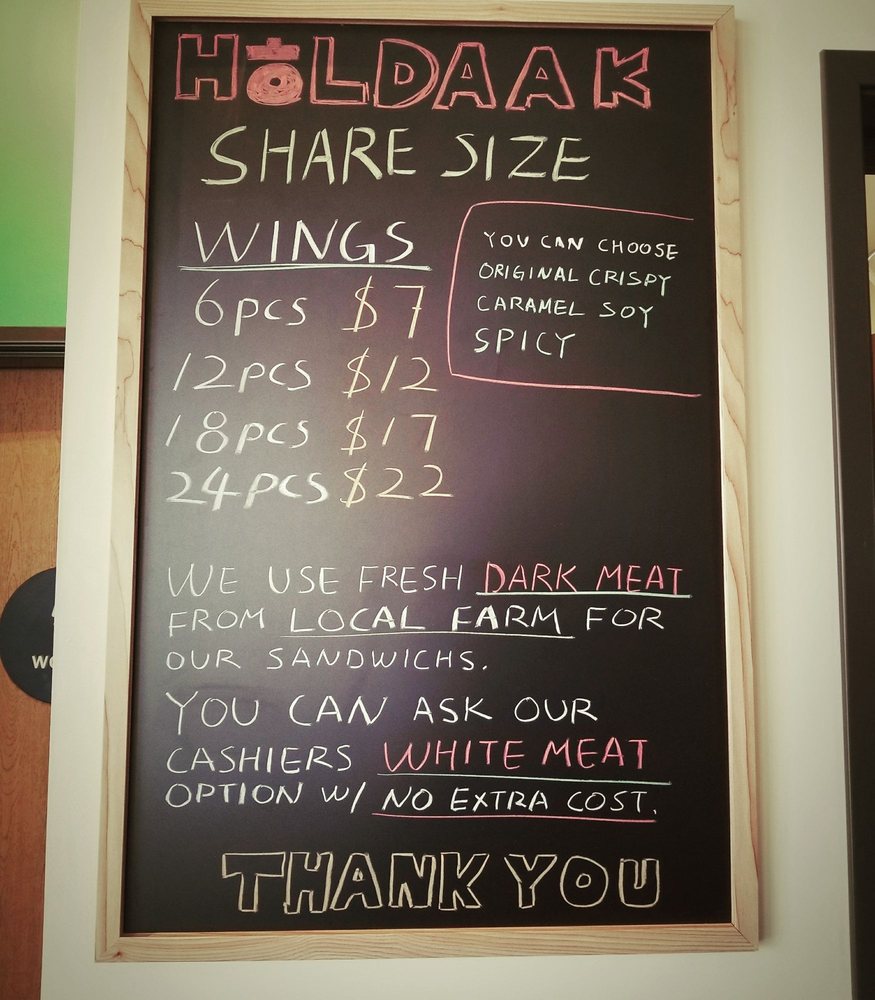 HOLDAAK
SHARE SIZE
WINGS
6pcs $7
12pcs $12
18pcs $17
24pcs $22
YOU CAN CHOOSE
ORIGINAL CRISPY
CARAMEL SOY
SPICY
WE USE FRESH DARK MEAT
FROM LOCAL FARM FOR
OUR SANDWICHS.
YOU CAN ASK OUR
CASHIERS WHITE MEAT
OPTION W/ NO EXTRA COST.
THANK YOU